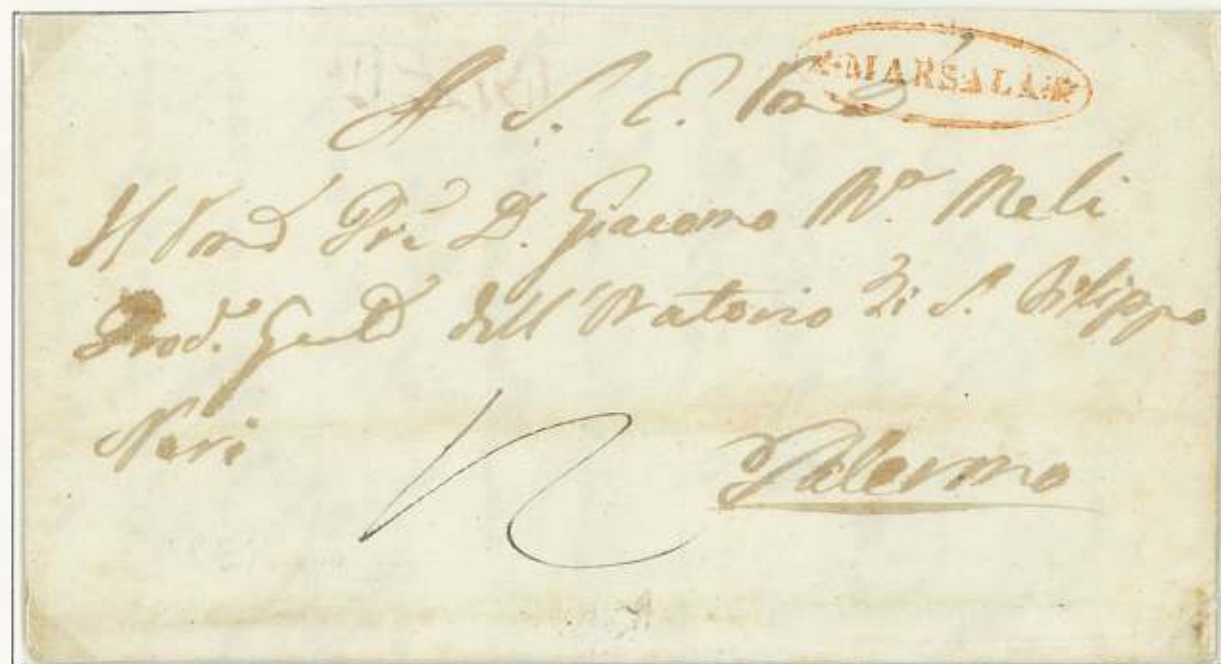 *MARSALA*
A S. E.
Il D. Giacomo Mª Meli
Prod.e dell'Oratorio di S. Filippo
Neri
Palermo